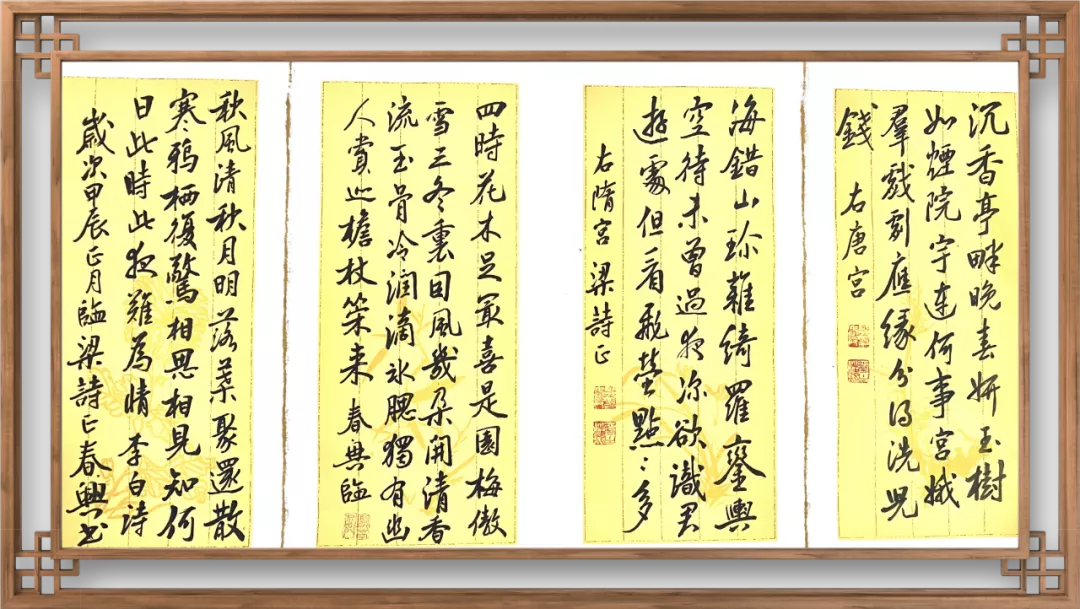 沉香亭畔晚春妍玉樹
如煙院宇連何事宮娥
羣戲劇應緣分得洗兒
錢 右唐宮
海錯山珍雜綺羅鑾輿
空待未曾過夜深欲識君
遊處但看飛螢點〻多
右隋宮 梁詩正
四時花木足冣喜是園梅傲
雪三冬裏因風幾朵開清香
流玉骨冷潤滴冰腮獨有幽
人賞巡檐杖策来 春興臨
秋風清秋月明落葉聚還散
寒鴉栖復驚相思相見知何
日此時此夜難為情 李白詩
歲次甲辰正月臨梁詩正春興书